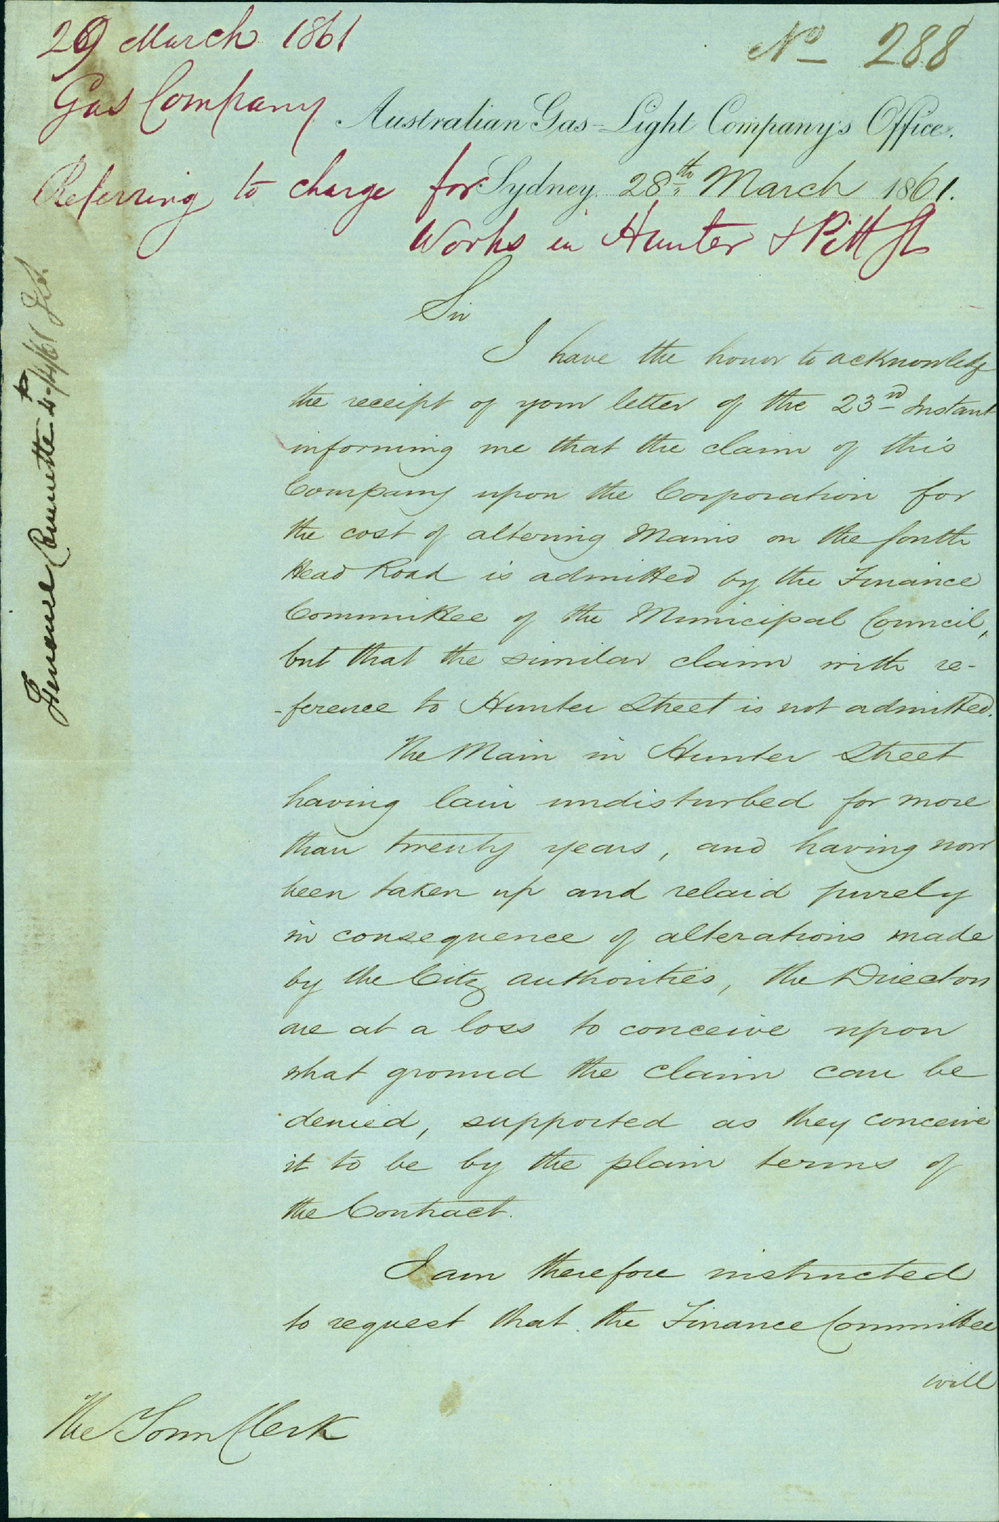 29 March 1861
No 288
Gas Company
Australian Gas-Light Company's Office.
Referring to charge for
Sydney 28th March 1861.
Works in Hunter & Pitt St
Sir
I have the honor to acknowledge
the receipt of your letter of the 23rd Instant
informing me that the claim of this
Company upon the Corporation for
the cost of altering Mains on the South
Head Road is admitted by the Finance
Committee of the Municipal Council,
but that the similar claim with re-
-ference to Hunter Street is not admitted.
The Main in Hunter Street
having lain undisturbed for more
than twenty years, and having now
been taken up and relaid purely
in consequence of alterations made
by the City authorities, the Directors
are at a loss to conceive upon
what ground the claim can be
denied, supported as they conceive
it to be by the plain terms of
the Contract.
I am therefore instructed
to request that the Finance Committee
will
The Town Clerk
Finance Committee